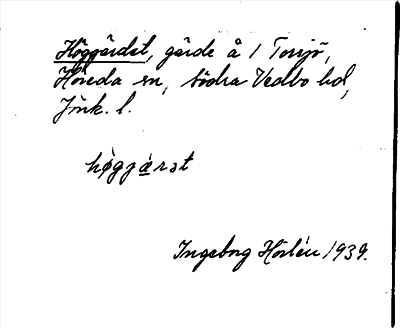 Höggärdet, gärde å 1 Torsjö,
Höreda sn, södra Vedbo hd,
Jönk. l.
høgjærət
Ingeborg Hörlén 1939.